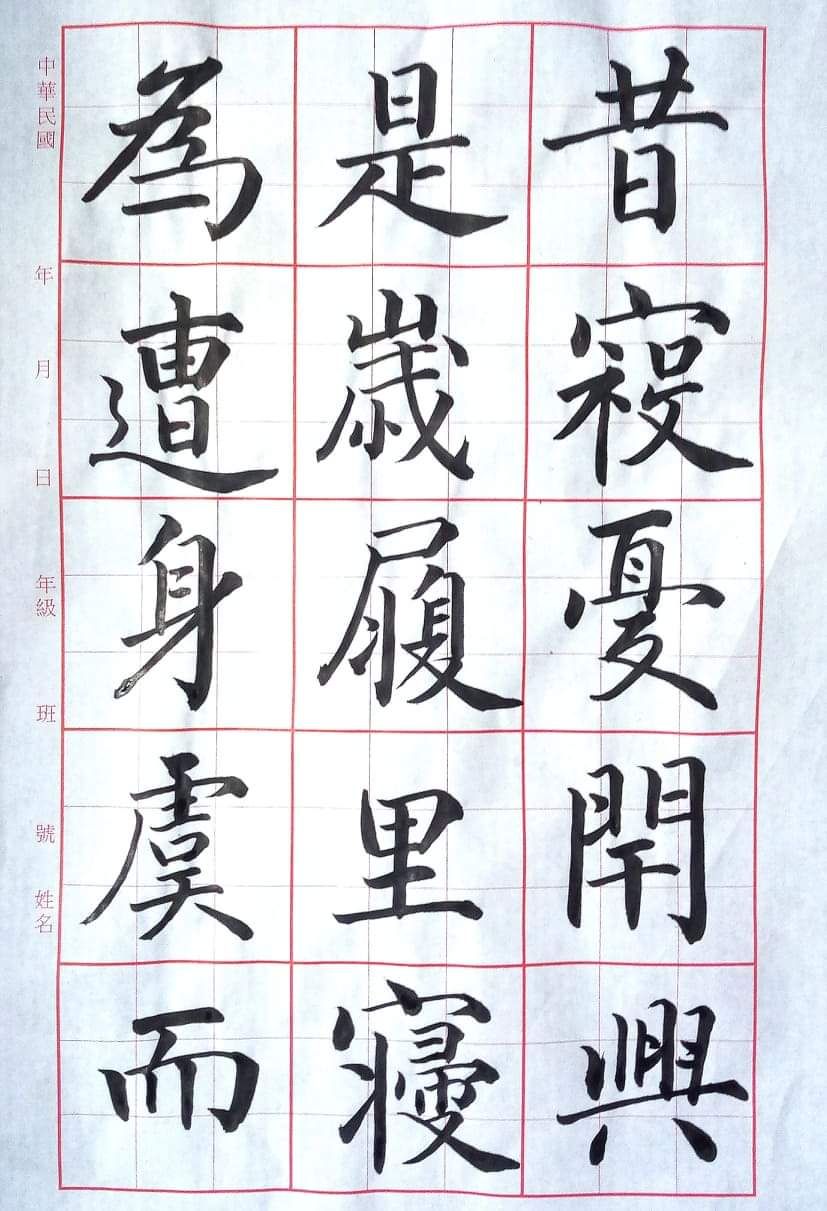 昔憂閈興
是歲履里寢
為遭身虞而
中華民國 年 月 日 年級 班 號 姓名